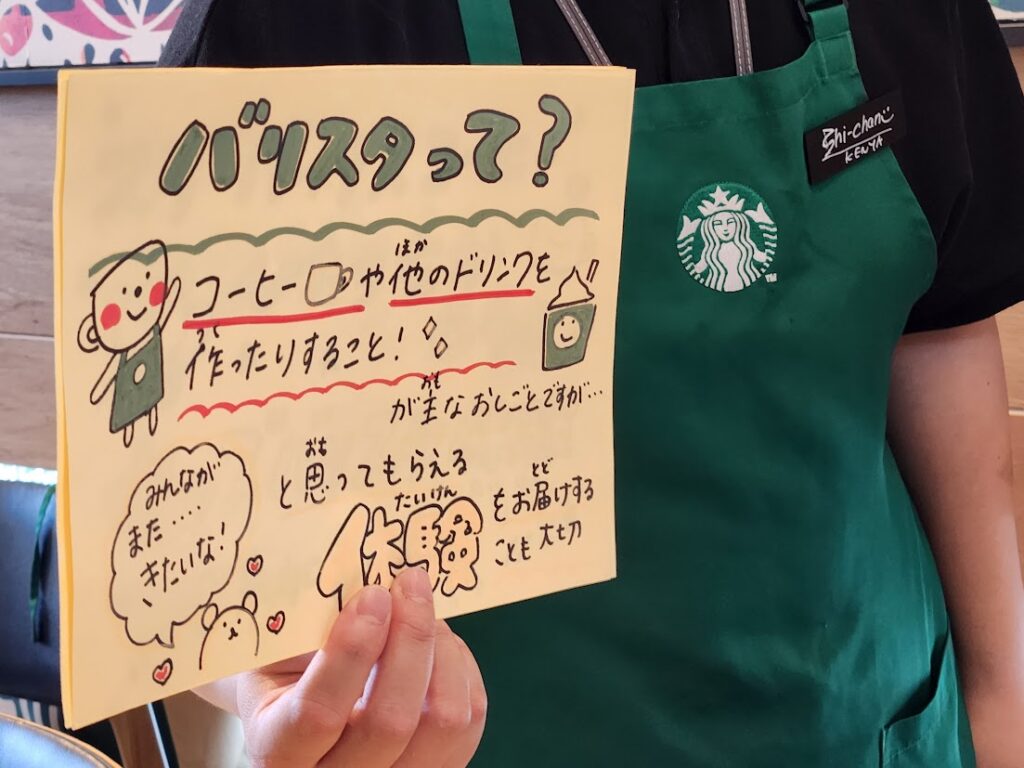 バリスタって?
コーヒーや他のドリンクを
ほか
作ったりすること!
つく
が主なおしごとですが…
おも
みんなが
また.....
きたいな!
と思ってもらえる
おも
体験
たいけん
をお届けする
とど
ことも大切
Shi-chan
KENYA
TM